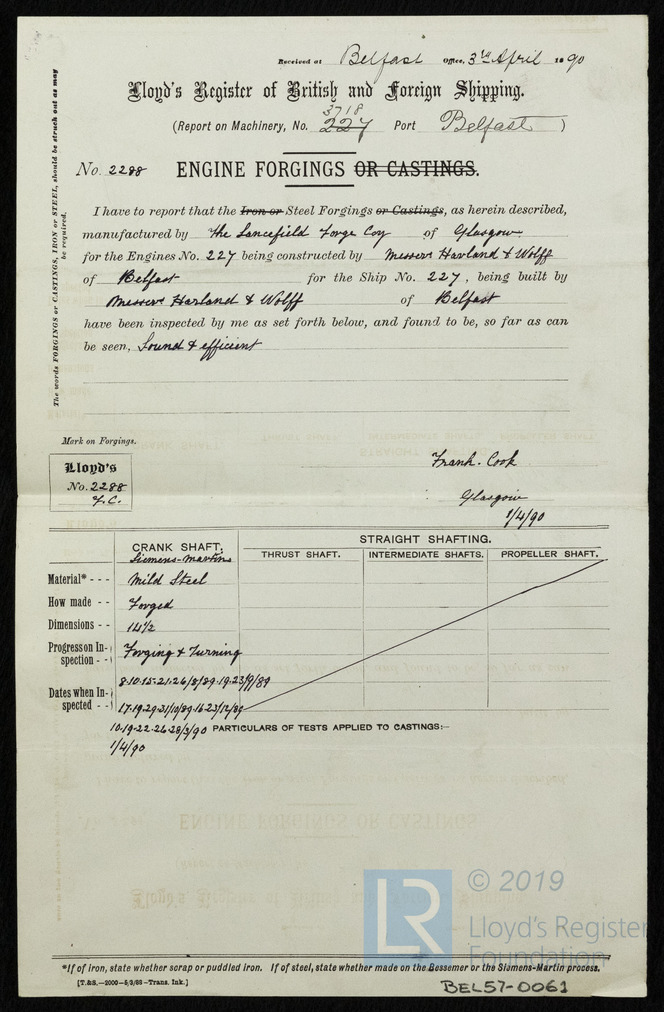 Received at Belfast Office, 3rd April 1890
Lloyd's Register of British and Foreign Shipping.
3718
(Report on Machinery, No. 227 Port Belfast )
No. 2288 ENGINE FORGINGS OR CASTINGS.
I have to report that the Iron or Steel Forgings or Castings, as herein described,
manufactured by The Lancefield Forge Coy of Glasgow
for the Engines No. 227 being constructed by Messers Harland & Wolff
of Belfast for the Ship No. 227, being built by
Messers Harland & Wolff of Belfast
have been inspected by me as set forth below, and found to be, so far as can
be seen, Sound & efficient
The words FORGINGS or CASTINGS, IRON or STEEL, should be struck out as may
be required.
Mark on Forgings.
Lloyd's
No. 2288
F.C.
Frank. Cook
Glasgow
1/4/90
CRANK SHAFT.
STRAIGHT SHAFTING.
THRUST SHAFT. INTERMEDIATE SHAFTS. PROPELLER SHAFT.
Siemens-Martins
Material* - - - Mild Steel
How made - - Forged
Dimensions - - 14½
Progress on In-
spection - - Forging & Turning
8.10.15.21.26/8/89.19.23/9/89
Dates when In-
spected - - 17.19.29.31/10/89.16.23/12/89
10.19.22.26.28/3/90 PARTICULARS OF TESTS APPLIED TO CASTINGS:—
1/4/90
© 2019
LR
Lloyd's Register
Foundation
*If of iron, state whether scrap or puddled iron. If of steel, state whether made on the Bessemer or the Siemens-Martin process.
[T.&S.—2000—5/3/88—Trans. Ink.]
BEL57-0061